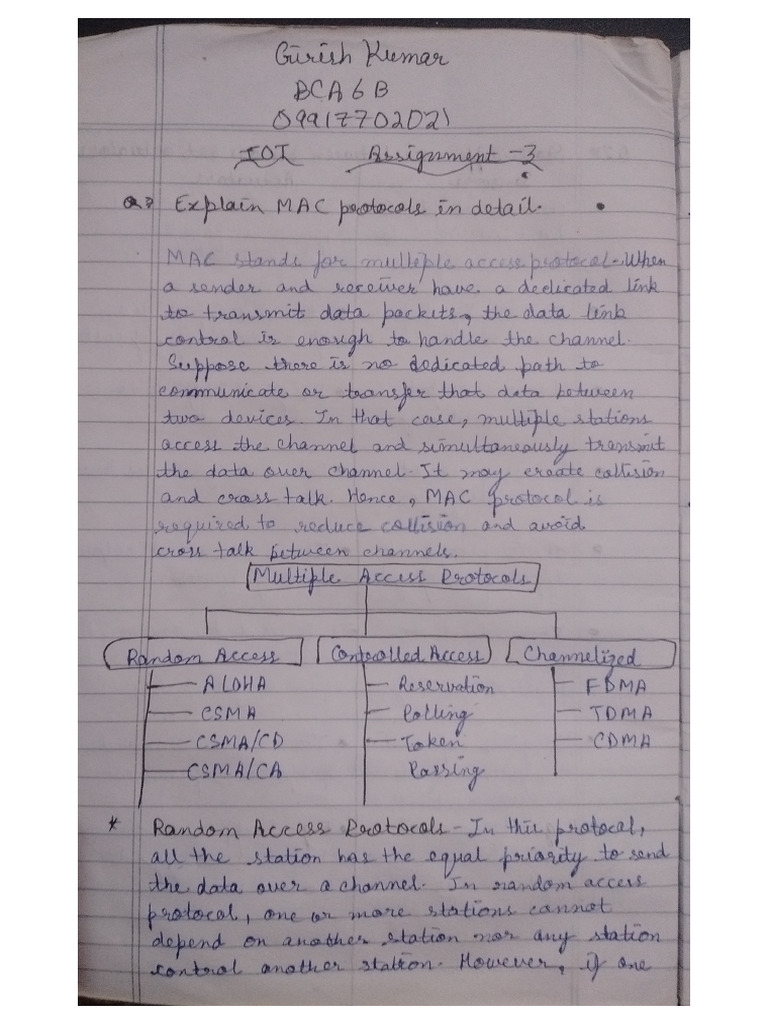 Girish Kumar
BCA 6 B
09917702021
IOT Assignment - 3
Explain MAC protocols in detail.
MAC stands for multiple access protocol - When
a sender and receiver have a dedicated link
to transmit data packets, the data link
control is enough to handle the channel.
Suppose there is no dedicated path to
communicate or transfer that data between
two devices. In that case, multiple stations
access the channel and simultaneously transmit
the data over channel. It may create collision
and cross talk. Hence, MAC protocol is
required to reduce collision and avoid
cross talk between channels.
Multiple Access Protocols
Random Access Controlled Access Channelized
ALOHA Reservation FDMA
CSMA Polling TDMA
CSMA/CD Token CDMA
CSMA/CA Passing
* Random Access Protocols - In this protocol,
all the station has the equal priority to send
the data over a channel. In random access
protocol, one or more stations cannot
depend on another station nor any station
control another station. However, if one